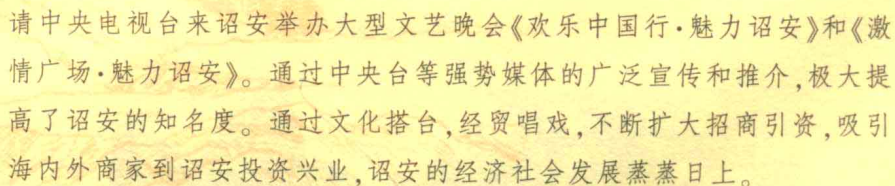 请中央电视台来诏安举办大型文艺晚会《欢乐中国行·魅力诏安》和《激
情广场·魅力诏安》。通过中央台等强势媒体的广泛宣传和推介,极大提
高了诏安的知名度。通过文化搭台,经贸唱戏,不断扩大招商引资,吸引
海内外商家到诏安投资兴业,诏安的经济社会发展蒸蒸日上。